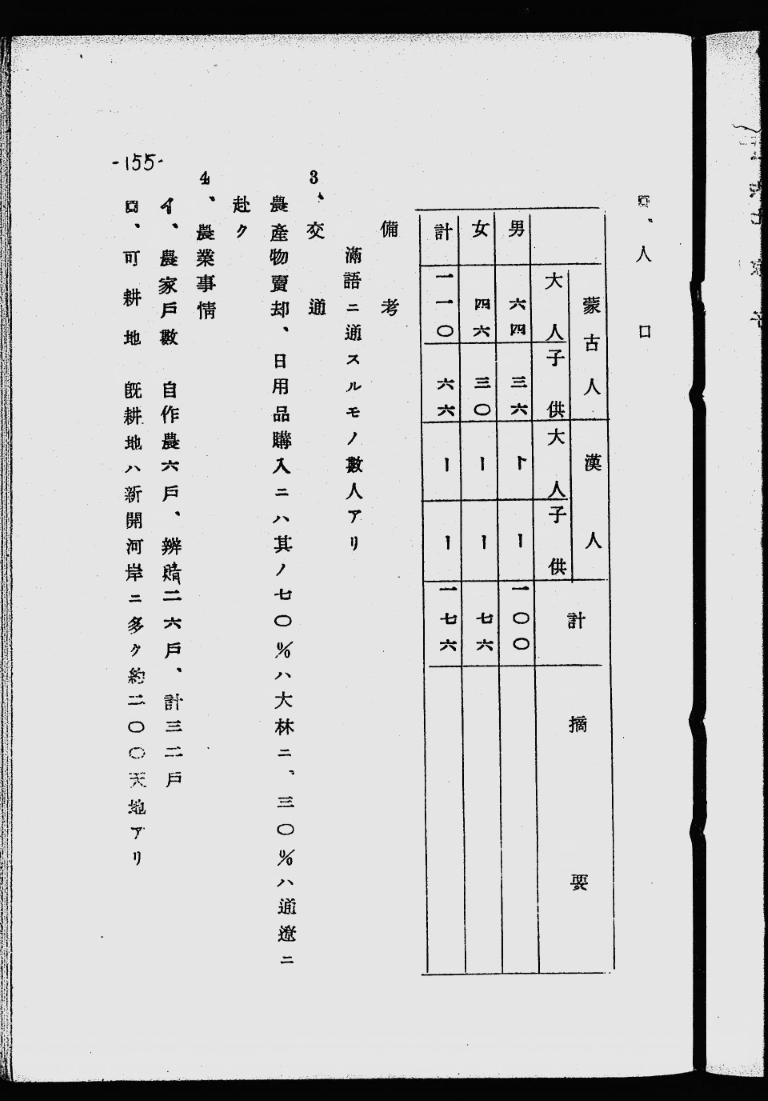 ロ、人口
蒙古人 漢人 計 摘要
大人 子供 大人 子供
男 六四 三六 ー ー 一〇〇
女 四六 三〇 ー ー 七六
計 一一〇 六六 ー ー 一七六
備考
滿語ニ通スルモノ數人アリ
3、交通
農產物賣却、日用品購入ニハ其ノ七〇%ハ大林ニ、三〇%ハ通遼ニ
赴ク
4、農業事情
イ、農家戶數 自作農六戶、辨睛二六戶、計三二戶
ロ、可耕地 既耕地ハ新開河岸ニ多ク約二〇〇天地アリ
-155-